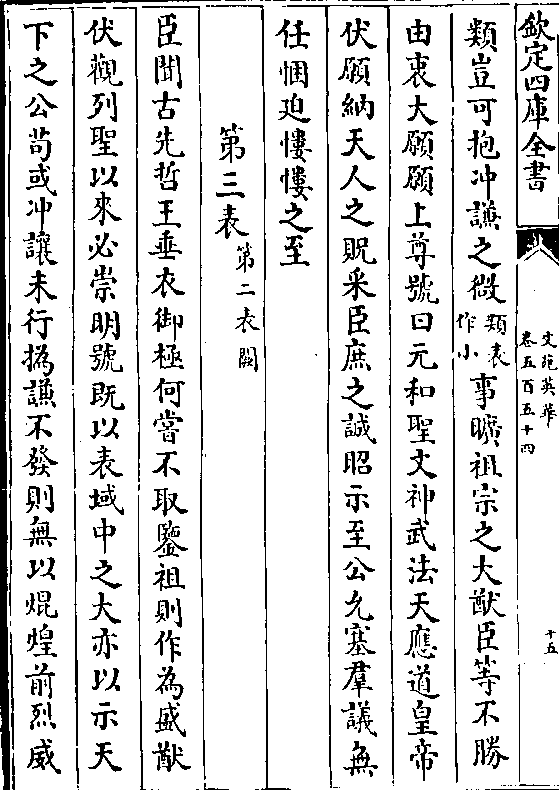 欽定四庫全書
文苑英華
卷五百五十四
十五
類豈可抱冲謙之微類表作小事曠祖宗之大猷臣等不勝
由衷大願願上尊號曰元和聖文神武法天應道皇帝
伏願納天人之貺采臣庶之誠昭示至公允塞羣議無
任悃迫慺慺之至
第三表第二表闕
臣聞古先哲王垂衣御極何嘗不取鑒祖則作為盛猷
伏觀列聖以來必崇明號既以表域中之大亦以示天
下之公苟或冲讓未行撝謙不發則無以焜煌前烈威